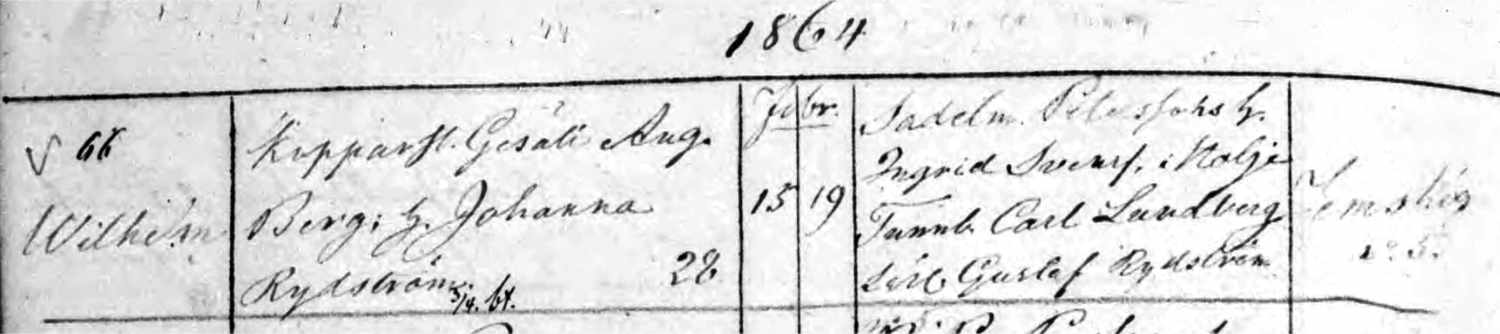 1864
66
Wilhelm
Kopparsl. Gesäll Aug.
Berg, h. Johanna
Rydström 28
5/4. 64.
Febr.
15 19
Sadelm. Peterssons h.
Ingrid Svensd. i Nolje
Tunnb. Carl Lundberg
Lärl. Gustaf Rydström
Jemshög
no 5.